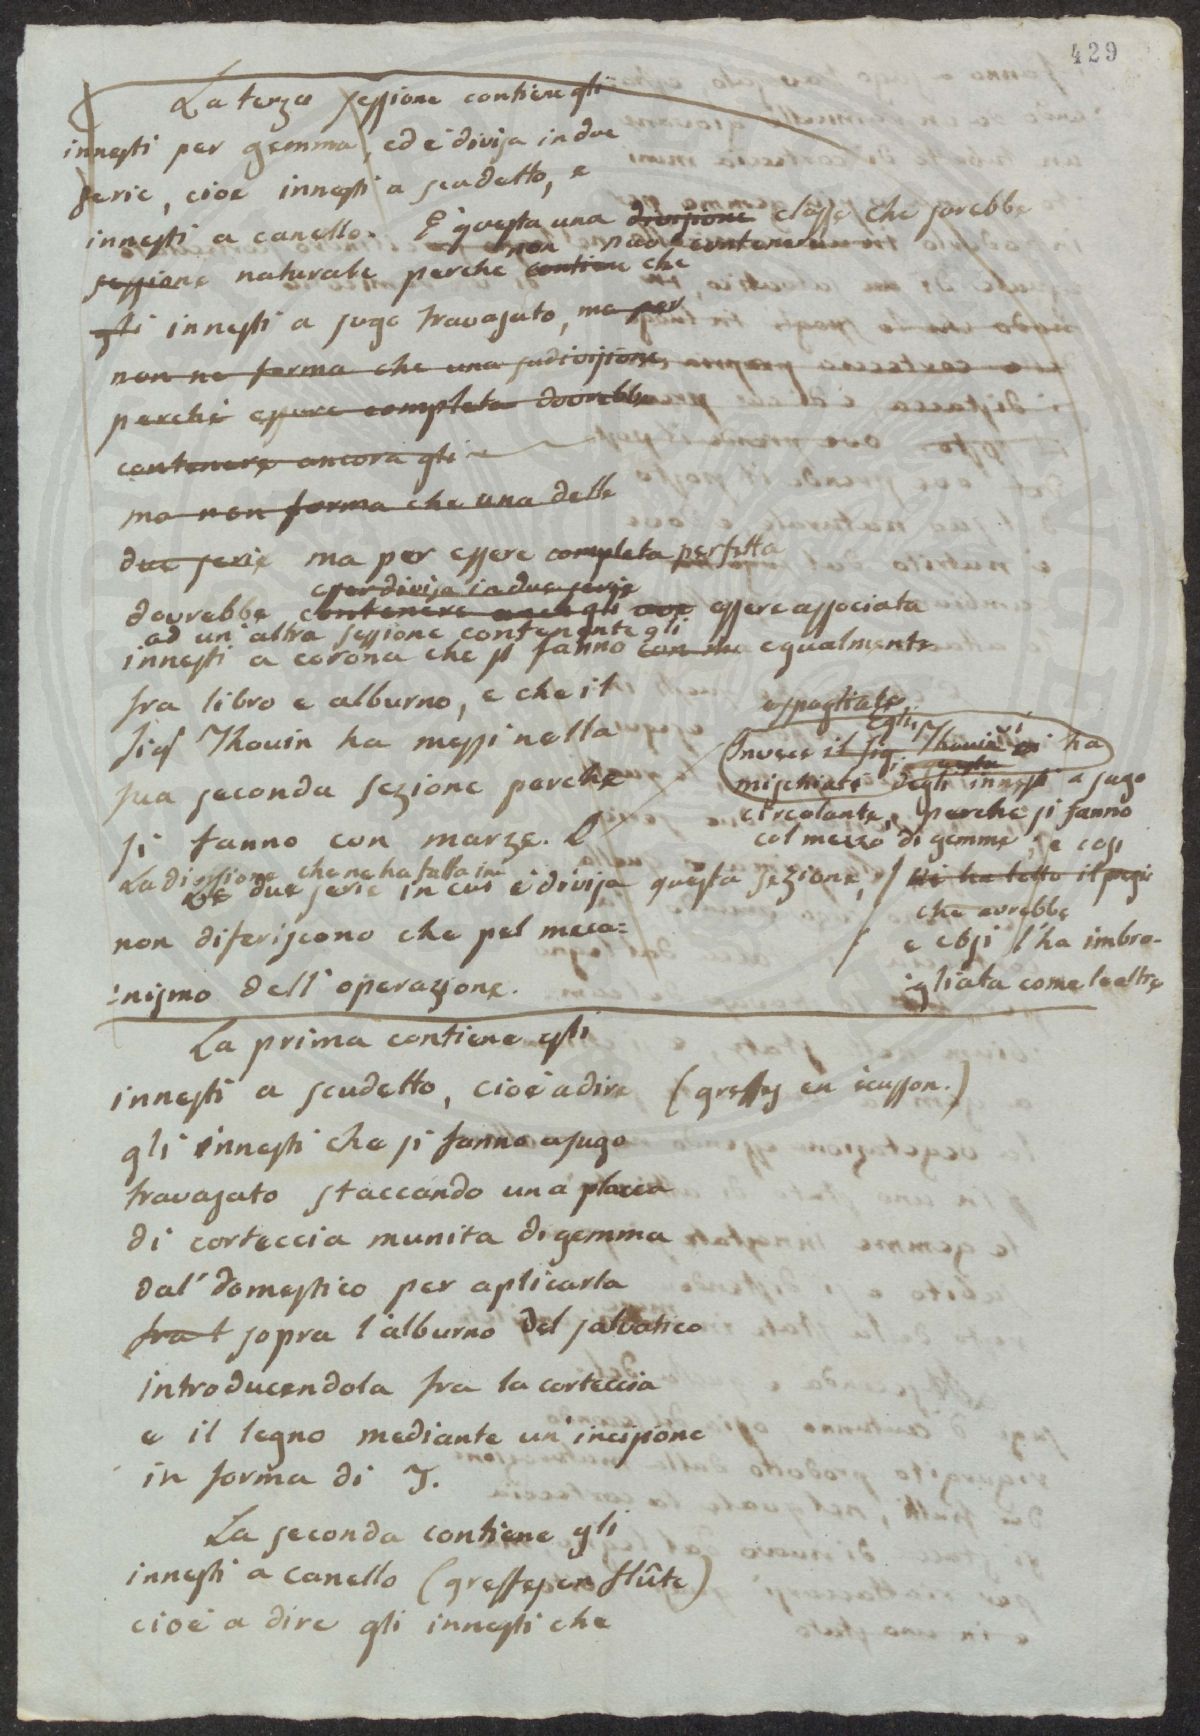 429
La terza sessione contiene gli
innesti per gemma, ed è divisa in due
serie, cioè innesti a scudetto, e
innesti a canello. È questa una divisione classe che sarebbe
non può contenere
sessione naturale perche contiene che
gli innesti a sugo travasato, ma per
non ne forma che una sudivisione,
perchè essere completa dovrebbe
contenere ancora gli
ma non forma che una delle
due serie ma per essere completa perfetta
esser divisa in due serie
dovrebbe contenere anche gli essere associata
ad un'altra sessione contenente gli
innesti a corona che si fanno con egualmente
fra libro e alburno, e che il
Sig Thouin ha messi nella
sua seconda sezione perche
si fanno con marze.
e spogliate,
Egli,
Invece il sig. Thouin vi ha
mischiati degli innesti a sugo
circolante, perche si fanno
col mezzo di gemme, e cosi
La divisione che ne ha fatta in
Le due serie in cui è divisa questa sezione,
non diferiscono che pel meca=
=nismo dell'operazione.
che avrebbe
e cosi l'ha imbro-
gliata come le altre
La prima contiene gli
innesti a scudetto, cioè a dire (greffes en écusson.)
gli innesti che si fanno a sugo
travasato staccando una placca
di corteccia munita di gemma
dal' domestico per aplicarla
fra l sopra l'alburno del salvatico
introducendola fra la corteccia
e il legno mediante un'incisione
in forma di T.
La seconda contiene gli
innesti a canello (greffes en flûte)
cioè a dire gli innesti che